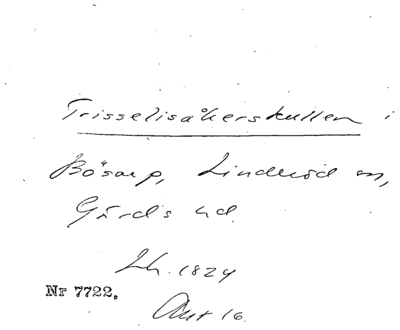 Trisselisåkerskullen i
Bösarp, Linderöd sn,
Gärds hd.
Lh. 1824
Nr 7722.
Akt 16